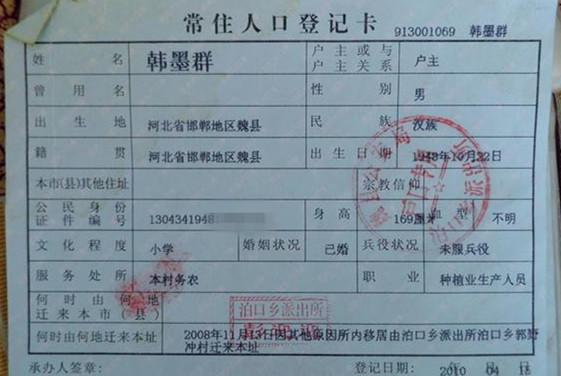 常住人口登记卡 913001069 韩墨群
姓名 韩墨群 户主或与户主关系 户主
曾用名 性别 男
出生地 河北省邯郸地区魏县 民族 汉族
籍贯 河北省邯郸地区魏县 出生日期 1948年10月22日
本市(县)其他住址 宗教信仰
公民身份证件编号 1304341948 身高 169厘米 血型 不明
文化程度 小学 婚姻状况 已婚 兵役状况 未服兵役
服务处所 本村务农 职业 种植业生产人员
何时由何地迁来本市(县)
泊口乡派出所
何时由何地迁来本址 2008年11月13日因其他原因所内移居由泊口乡派出所泊口乡郭野冲村迁来本址
承办人签章: 登记日期: 2010年04月15